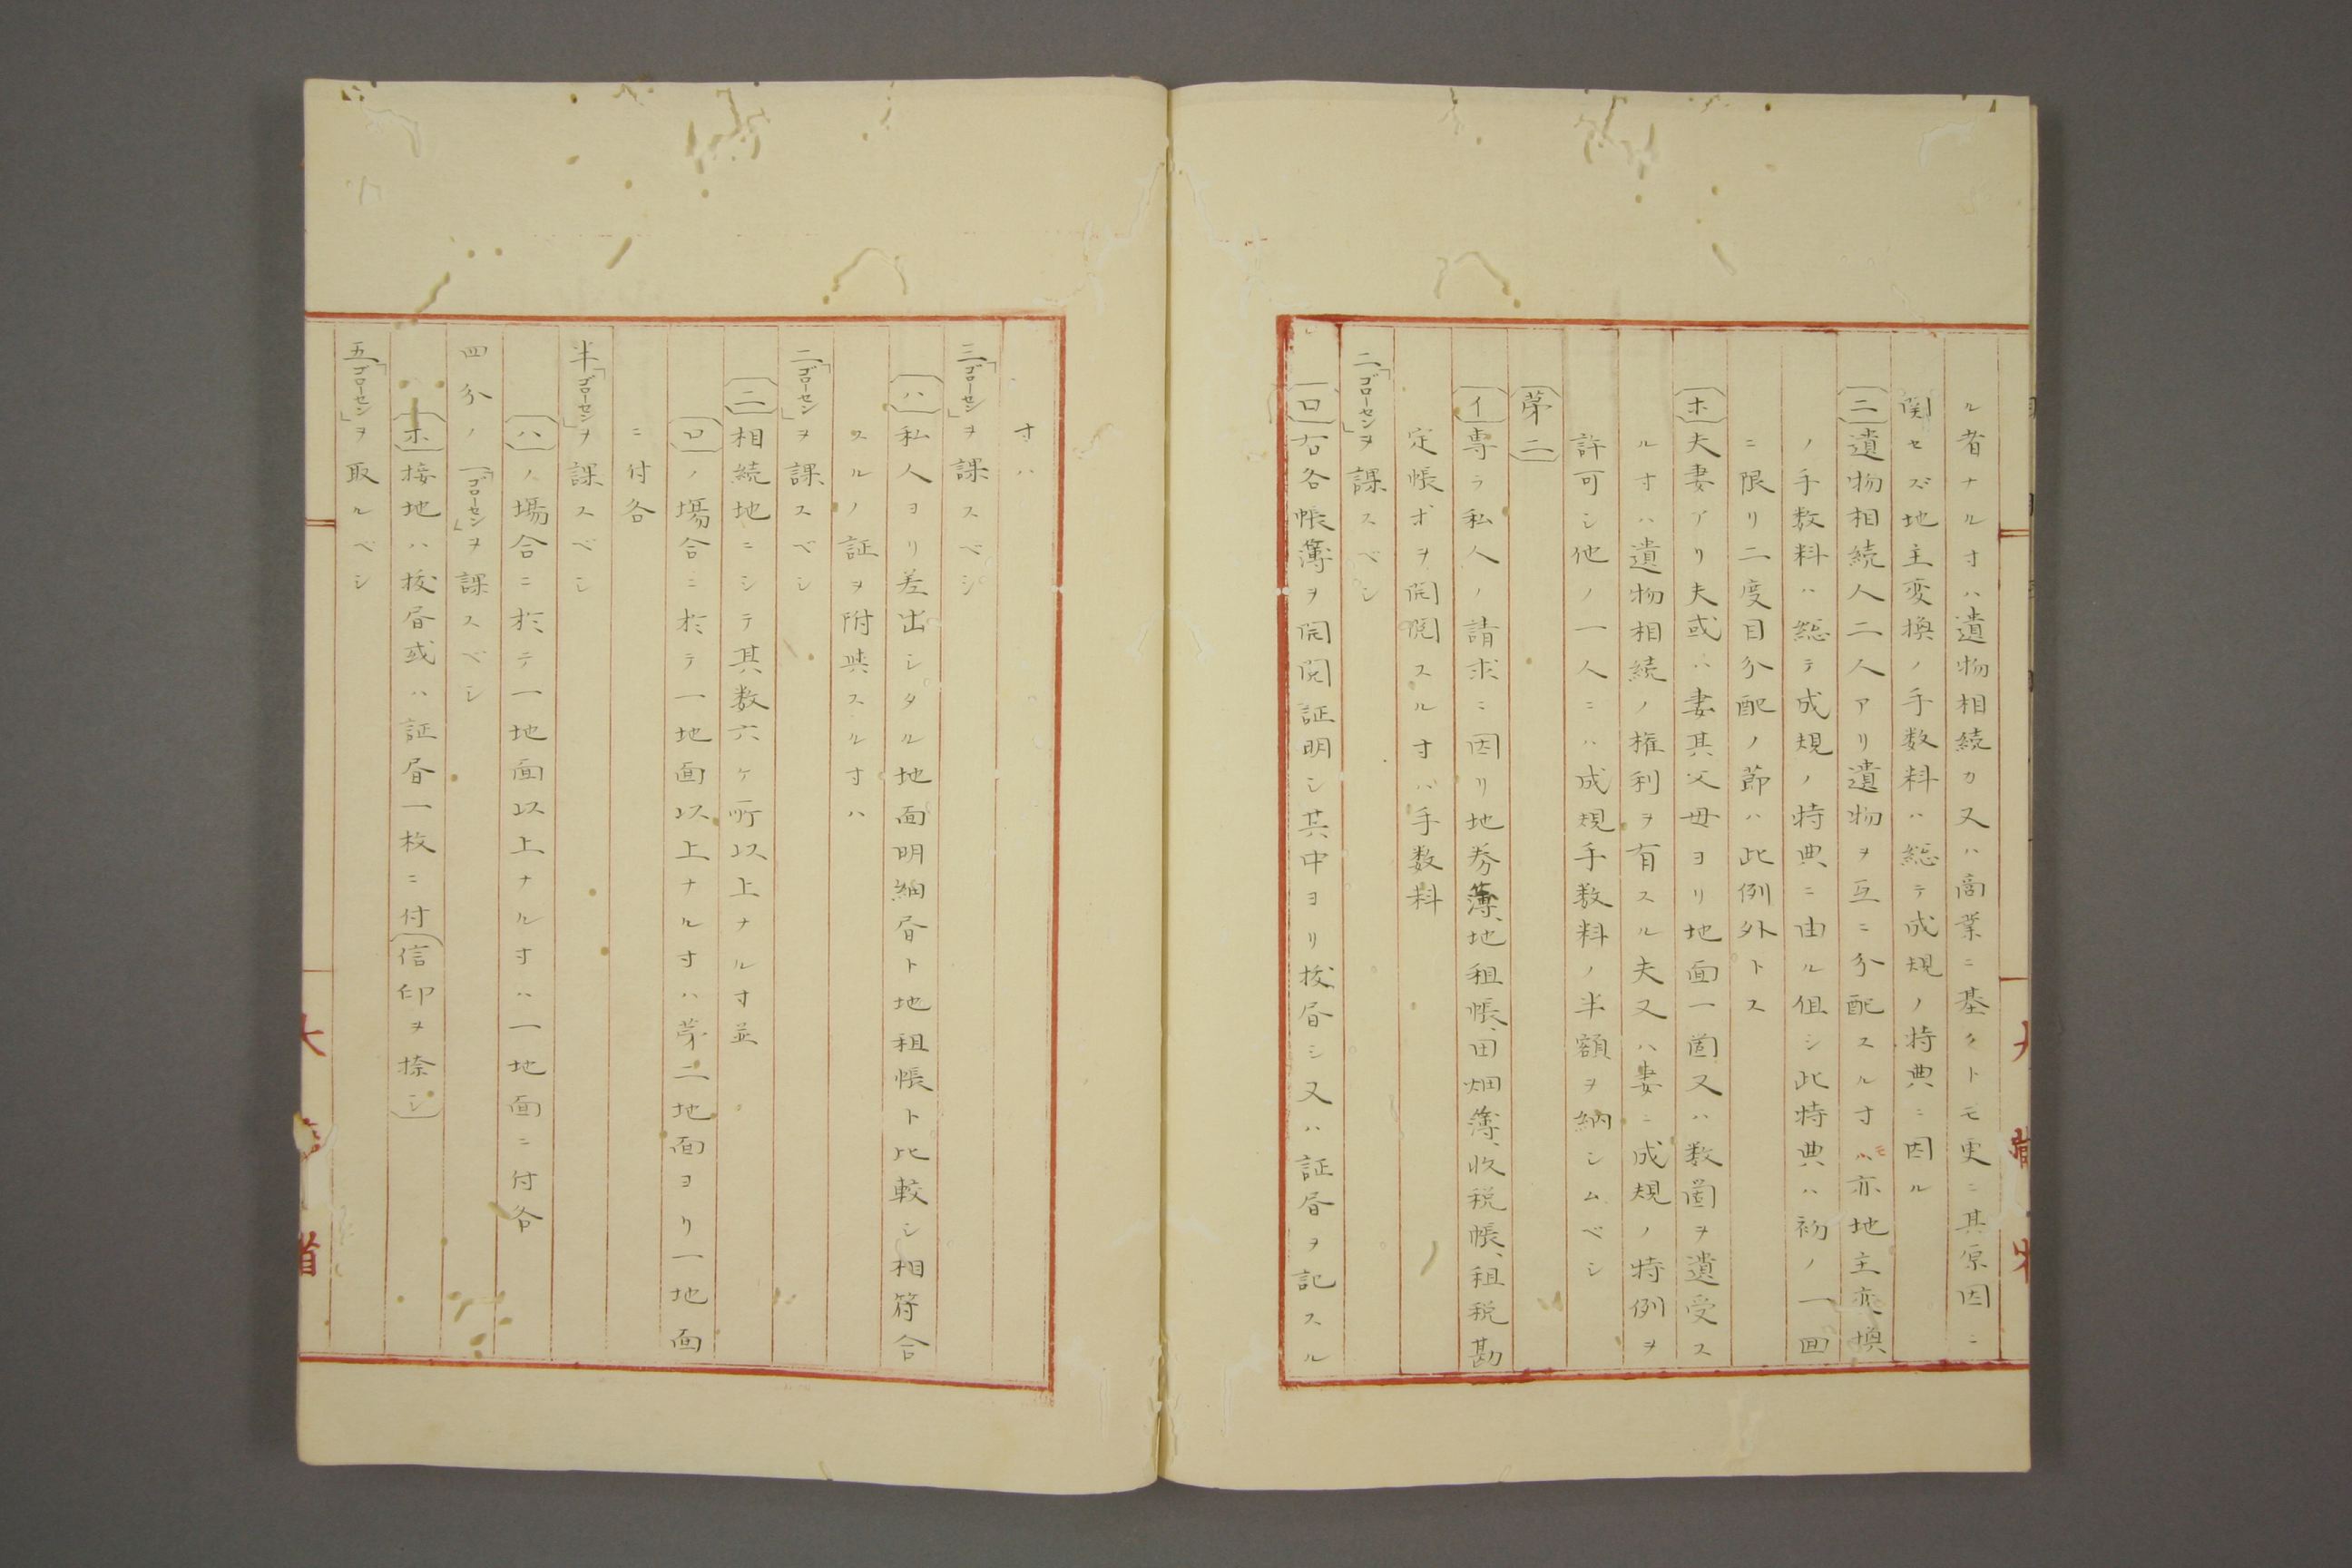 ル者ナルヿハ遺物相続カ又ハ商業ニ基クトモ更ニ其原因ニ
関セズ地主変換ノ手数料ハ総テ成規ノ特典ニ因ル
(ニ)遺物相続人二人アリ遺物ヲ互ニ分配スルヿハモ亦地主変換
ノ手数料ハ総テ成規ノ特典ニ由ル但シ此特典ハ初ノ一回
ニ限リ二度目分配ノ節ハ此例外トス
(ホ)夫妻アリ夫或ハ妻其父母ヨリ地面一箇又ハ数箇ヲ遺受ス
ルヿハ遺物相続ノ権利ヲ有スル夫又ハ妻ニ成規ノ特例ヲ
許可シ他ノ一人ニハ成規手数料ノ半額ヲ納シムベシ
(第二)
(イ)専ラ私人ノ請求ニ因リ地券簿、地租帳、田畑簿、収税帳、租税勘
定帳ホヲ開閲スルヿハ手数料
二「ゴローセン」ヲ課スベシ
(ロ)右各帳簿ヲ開閲証明シ其中ヨリ抜昏シ又ハ証昏ヲ記スル
ヿハ
三「ゴローセン」ヲ課スベシ
(ハ)私人ヨリ差出シタル地面明細昏ト地租帳ト比較シ相符合
スルノ証ヲ附与スルヿハ
二「ゴローセン」ヲ課スベシ
(ニ)相続地ニシテ其数六ケ所以上ナルヿ並
(ロ)ノ場合ニ於テ一地面以上ナルヿハ第二地面ヨリ一地面
ニ付各
半「ゴローセン」ヲ課スベシ
(ハ)ノ場合ニ於テ一地面以上ナルヿハ一地面ニ付各
四分ノ一「ゴローセン」ヲ課スベシ
(ホ)接地ハ抜昏或ハ証昏一枚ニ付(信印ヲ捺シ)
五「ゴローセン」ヲ取ルベシ
大
省